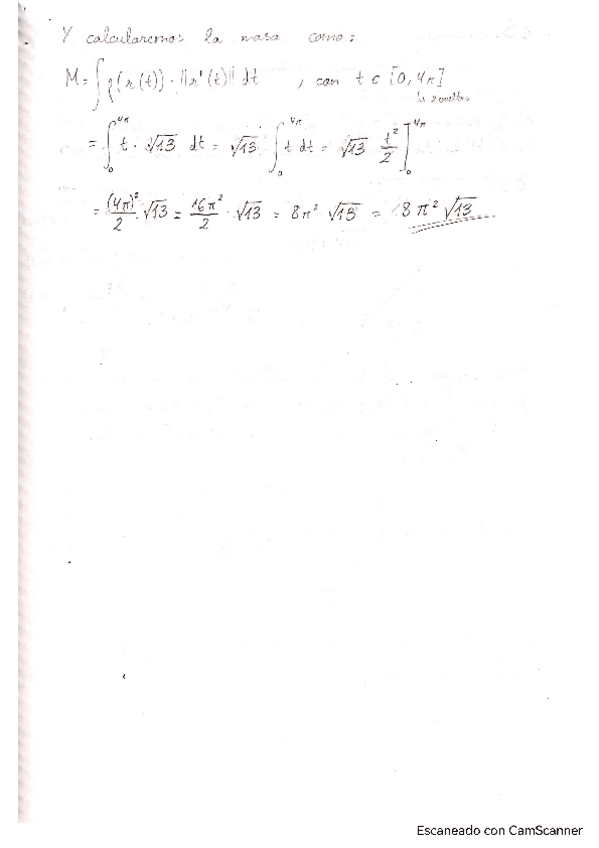 Y calcularemos la masa como:
M = ∫ ρ(r(t)) · ||r'(t)|| dt , con t ∈ [0, 4π]
las 2 vueltas
= ∫₀^4π t · √13 dt = √13 ∫₀^4π t dt = √13 t²/2 ]₀^4π
= (4π)²/2 · √13 = 16π²/2 · √13 = 8π² √13 = 8π² √13
Escaneado con CamScanner